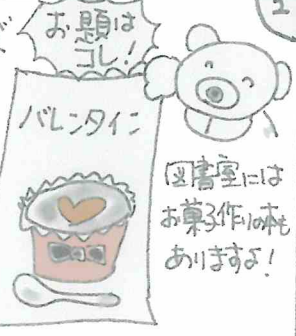 お題は
コレ!
バレンタイン
図書室には
お菓子作りの本も
ありますよ!